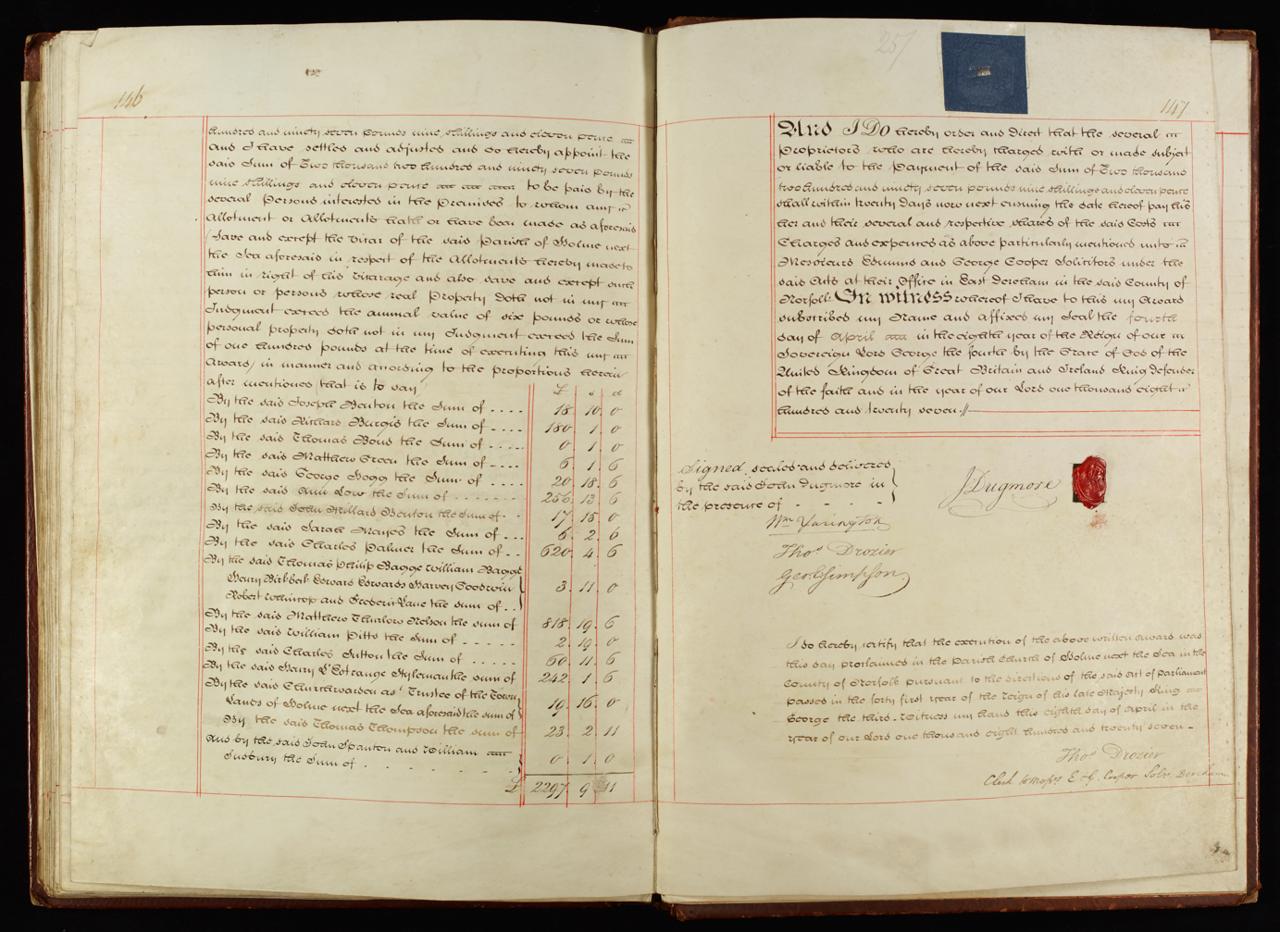 146
hundred and ninety seven pounds nine shillings and eleven pence
and I have settled and adjusted and do hereby appoint the
said Sum of Two thousand two hundred and ninety seven pounds
nine shillings and eleven pence to be paid by the
several Persons interested in the Premises to whom any
Allotment or Allotments hath or have been made as aforesaid
(Save and except the Vicar of the said Parish of Holme next
the Sea aforesaid in respect of the Allotments hereby made to
him in right of his Vicarage and also save and except such
person or persons whose real Property doth not in my
Judgment exceed the annual value of six pounds or whose
personal property doth not in my Judgment exceed the Sum
of one hundred pounds at the time of executing this my
Award) in manner and according to the proportions herein
after mentioned that is to say
£ s d
By the said Joseph Benton the Sum of .... 18. 10. 0
By the said Richard Burgis the Sum of .... 180. 1. 0
By the said Thomas Bond the Sum of .... 0. 1. 0
By the said Matthew Green the Sum of .... 6. 1. 6
By the said George Hogg the Sum of .... 20. 18. 6
By the said Ann Low the Sum of ....... 256. 13. 6
By the said John Millard Benton the Sum of . 17. 15. 0
By the said Sarah Mayes the Sum of .... 6. 2. 6
By the said Charles Palmer the Sum of .. 620. 4. 6
By the said Thomas Philip Bagge William Bagge
Henry Birkbeck Edward Edwards Harvey Goodwin
Robert Winthrop and Frederic Lane the sum of .. 3. 11. 0
By the said Matthew Charlow Nelson the sum of 818. 19. 6
By the said William Pitts the Sum of ..... 2. 19. 0
By the said Charles Sutton the Sum of ..... 60. 11. 6
By the said Henry L'Estrange Styleman the sum of 242. 1. 6
By the said Churchwarden as Trustee of the Town
Lands of Holme next the Sea aforesaid the sum of 19. 16. 0
By the said Thomas Thompson the sum of 23. 2. 11
And by the said John Spanton and William
Susbury the Sum of . . . . . . . 0. 1. 0
£ 2297. 9. 11
257
147
And I Do hereby order and direct that the several
Proprietors who are hereby charged with or made subject
or liable to the Payment of the said Sum of Two thousand
two hundred and ninety seven pounds nine shillings and eleven pence
shall within twenty Days now next ensuing the date hereof pay his
her and their several and respective shares of the said Costs
Charges and expences as above particularly mentioned unto
Messieurs Edmund and George Cooper Solicitors under the
said Acts at their Office in East Dereham in the said County of
Norfolk In witness whereof I have to this my Award
subscribed my Name and affixed my Seal the fourth
day of April in the eighth year of the Reign of our
Sovereign Lord George the fourth by the Grace of God of the
United Kingdom of Great Britain and Ireland King defender
of the faith and in the year of our Lord one thousand eight
hundred and twenty seven.//
Signed, sealed and delivered
by the said John Dugmore in
the presence of . . . .
J Dugmore
Wm Yarington
Thos Drozier
Geo. Simpson
I do hereby certify that the execution of the above written award was
this day proclaimed in the Parish Church of Holme next the Sea in the
County of Norfolk pursuant to the directions of the said act of Parliament
passed in the forty first year of the reign of his late Majesty King
George the third. Witness my hand this eighth day of April in the
year of our Lord one thousand eight hundred and twenty seven -
Thos Drozier
Clerk to Messrs E & G. Cooper Solrs Dereham